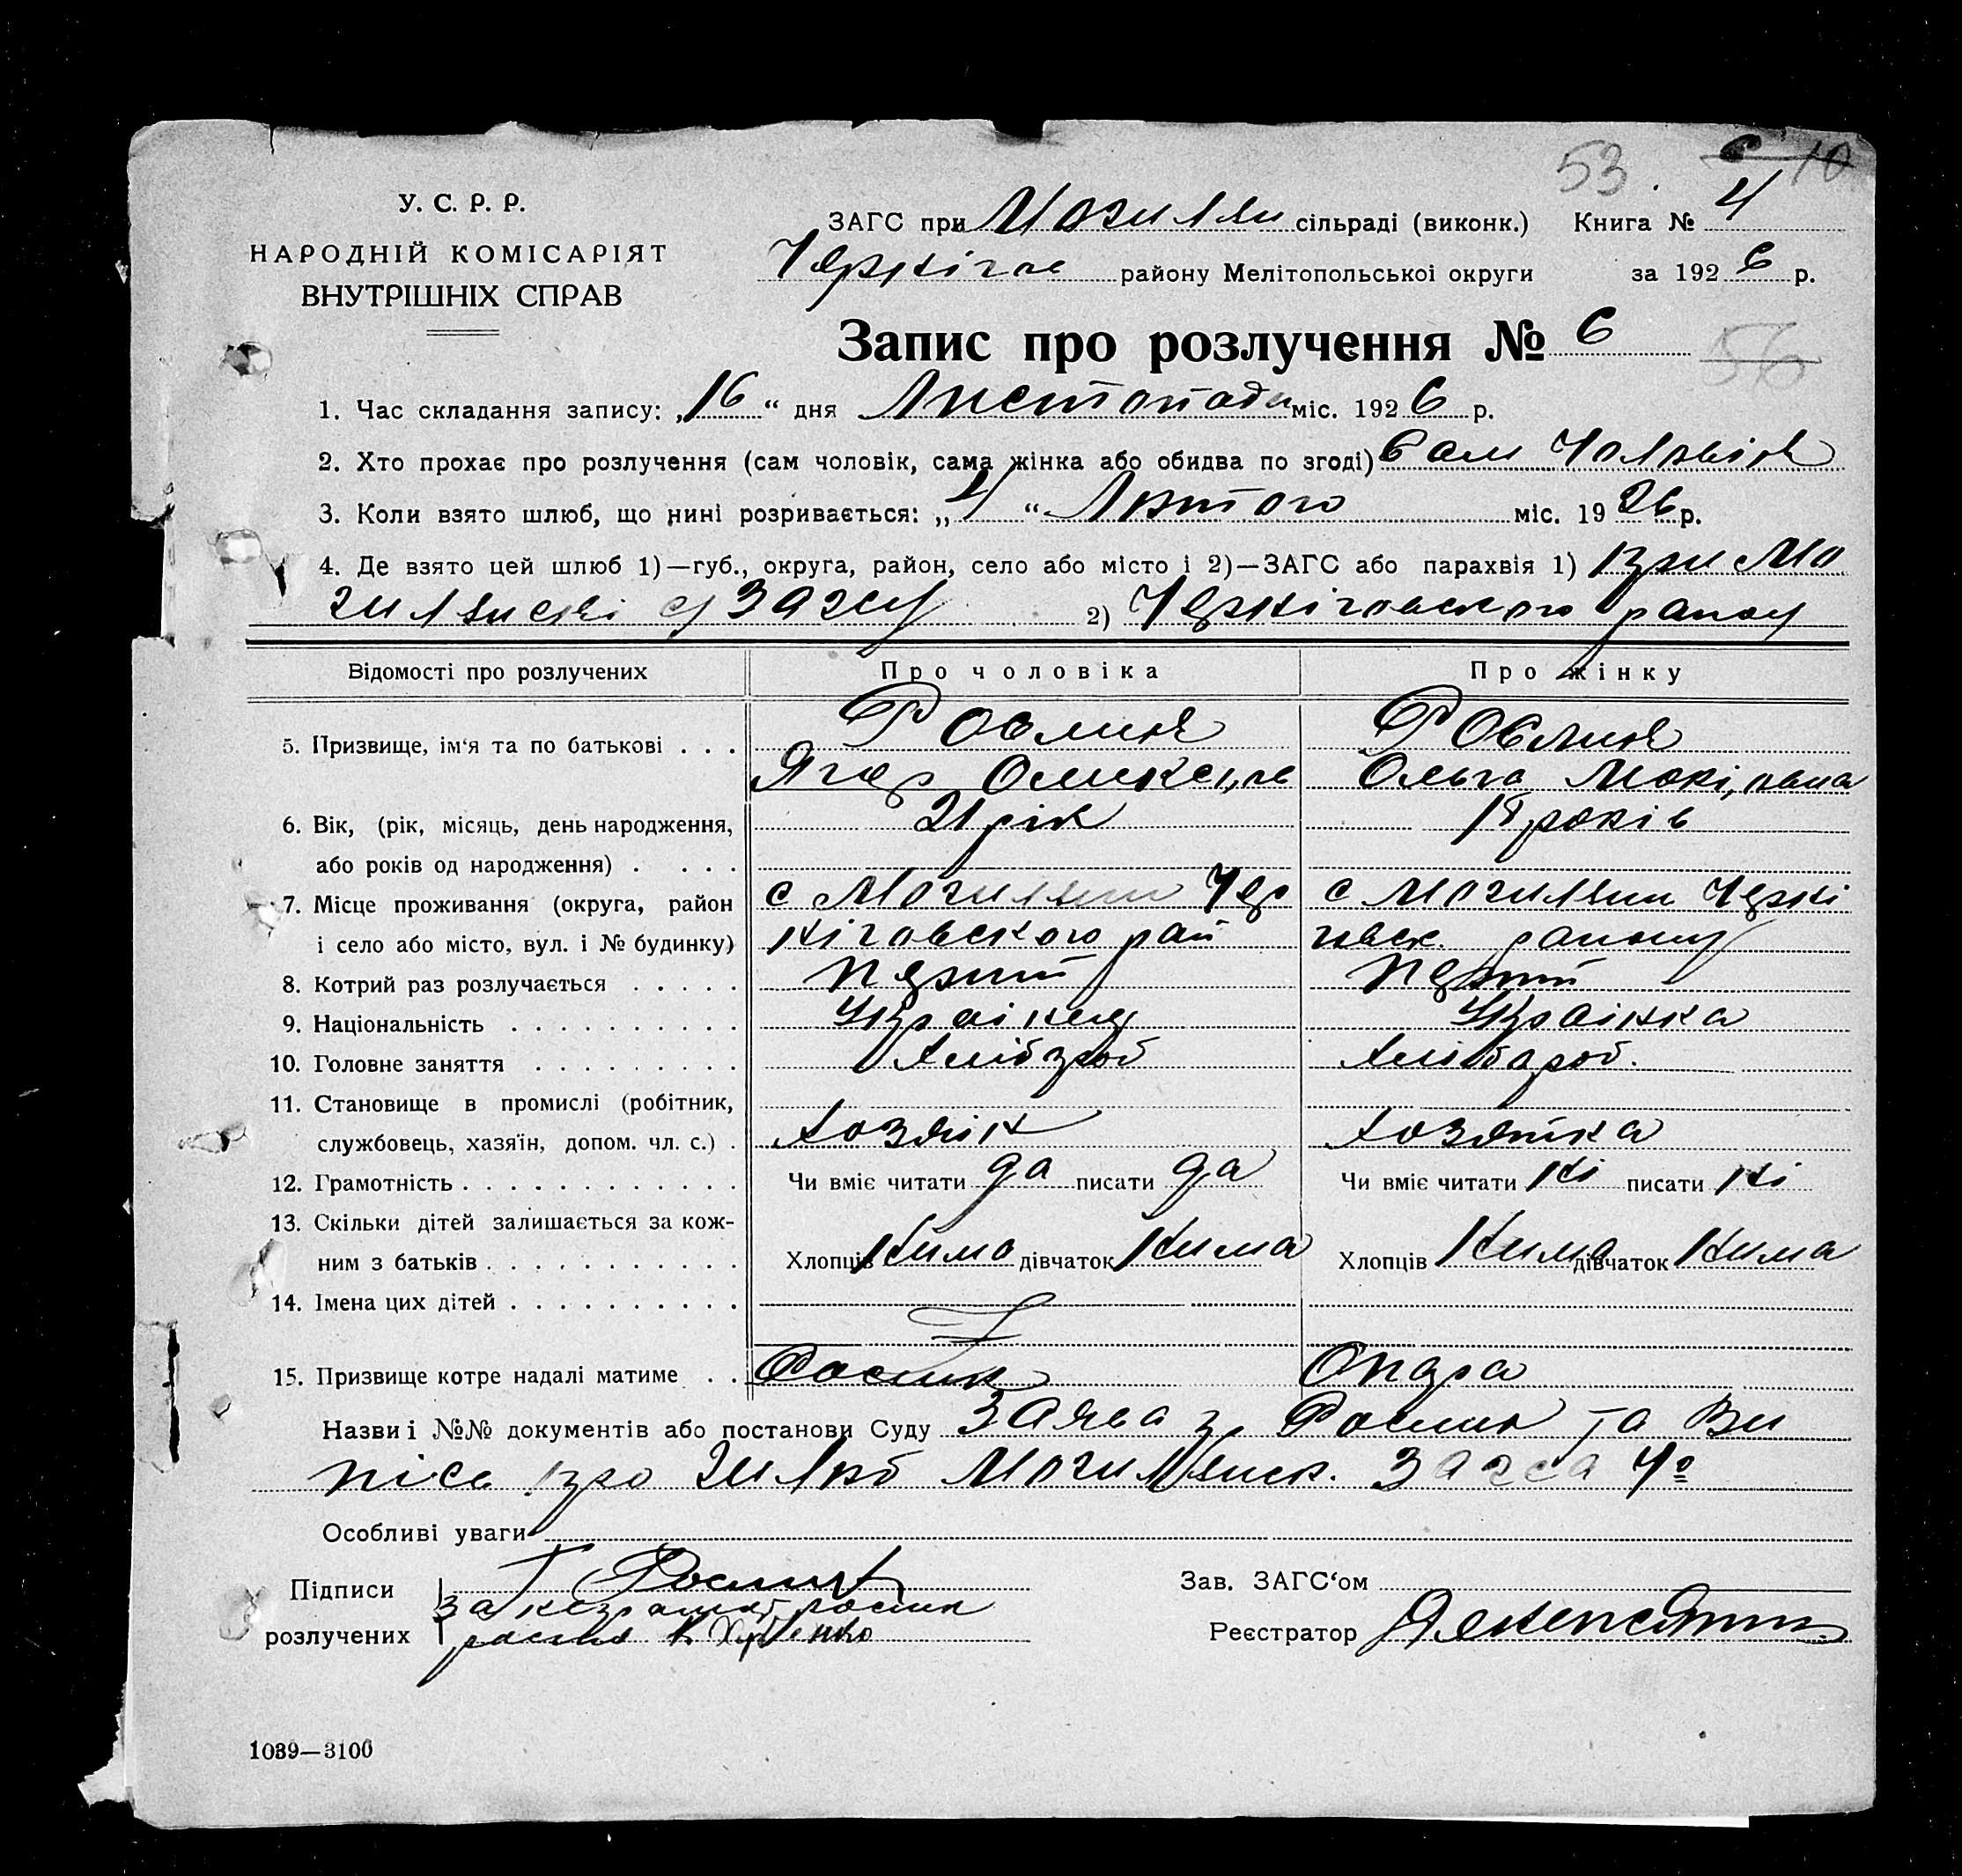 53. 6 10
У. С. Р. Р.
НАРОДНІЙ КОМІСАРІЯТ
ВНУТРІШНІХ СПРАВ
ЗАГС при Могиляни сільраді (виконк.) Книга № 4
Чернігов району Мелітопольської округи за 1926 р.
Запис про розлучення № 6
56
1. Час складання запису: „16“ дня Листопада міс. 1926 р.
2. Хто прохає про розлучення (сам чоловік, сама жінка або обидва по згоді) Сам Чоловік
3. Коли взято шлюб, що нині розривається: „4“ Лютого міс. 1926 р.
4. Де взято цей шлюб 1)—губ., округа, район, село або місто і 2)—ЗАГС або парахвія 1) при Мо
гилянскі с/ Загсу 2) Чернігов. району
Відомості про розлучених
Про чоловіка
Про жінку
5. Призвище, ім‘я та по батькові . . .
Рослик Рослик
Ягор Ольга
6. Вік, (рік, місяць, день народження,
або років од народження) . . . .
21 рік 18 років
7. Місце проживання (округа, район
і село або місто, вул. і № будинку)
с Могиляни Чер с Могиляни Черні
ніговского рай говск. району
8. Котрий раз розлучається . . . . .
Перший Перший
9. Національність . . . . . . . . . .
Українец Українка
10. Головне заняття . . . . . . . . .
Хлібороб Хлібороб.
11. Становище в промислі (робітник,
службовець, хазяїн, допом. чл. с.) .
Хозяїн Хозяйка
12. Грамотність . . . . . . . . . . . .
Чи вміє читати да писати да Чи вміє читати ні писати ні
13. Скільки дітей залишається за кож-
ним з батьків . . . . . . . . . . .
Хлопців Нима дівчаток Нима Хлопців Нима дівчаток Нима
14. Імена цих дітей . . . . . . . . . .
15. Призвище котре надалі матиме . .
Рослик Опара
Назви і №№ документів або постанови Суду Заява Рослик та Ви
пісь про Шлюб Могилянск. Загса 4
Особливі уваги
Підписи
розлучених
Рослик
за неграмот. рослик
росписа
Зав. ЗАГС‘ом
Реєстратор
1039—3100